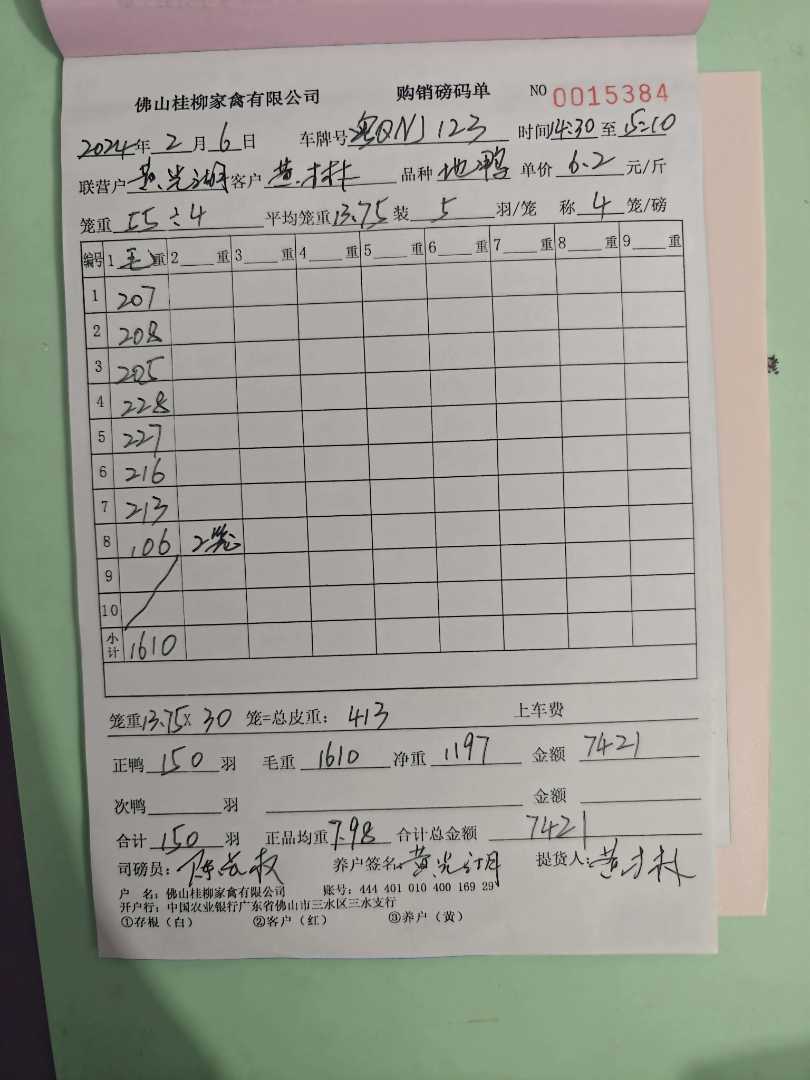 佛山桂柳家禽有限公司 购销磅码单 NO 0015384
2024年2月6日 车牌号粤QNJ123 时间14:30至15:10
联营户黄光湖客户黄木林 品种地鸭 单价6.2元/斤
笼重55÷4 平均笼重13.75装5羽/笼 称4笼/磅
编号 1毛重 2重 3重 4重 5重 6重 7重 8重 9重
1 207
2 208
3 205
4 228
5 227
6 216
7 213
8 106 2笼
9
10
小计 1610
笼重13.75×30笼=总皮重:413 上车费
正鸭150羽 毛重1610净重1197 金额7421
次鸭羽 金额
合计150羽 正品均重7.98合计总金额7421
司磅员: 养户签名: 提货人:
户 名:佛山桂柳家禽有限公司 账号:444 401 010 400 169 29
开户行:中国农业银行广东省佛山市三水区三水支行
①存根(白) ②客户(红) ③养户(黄)